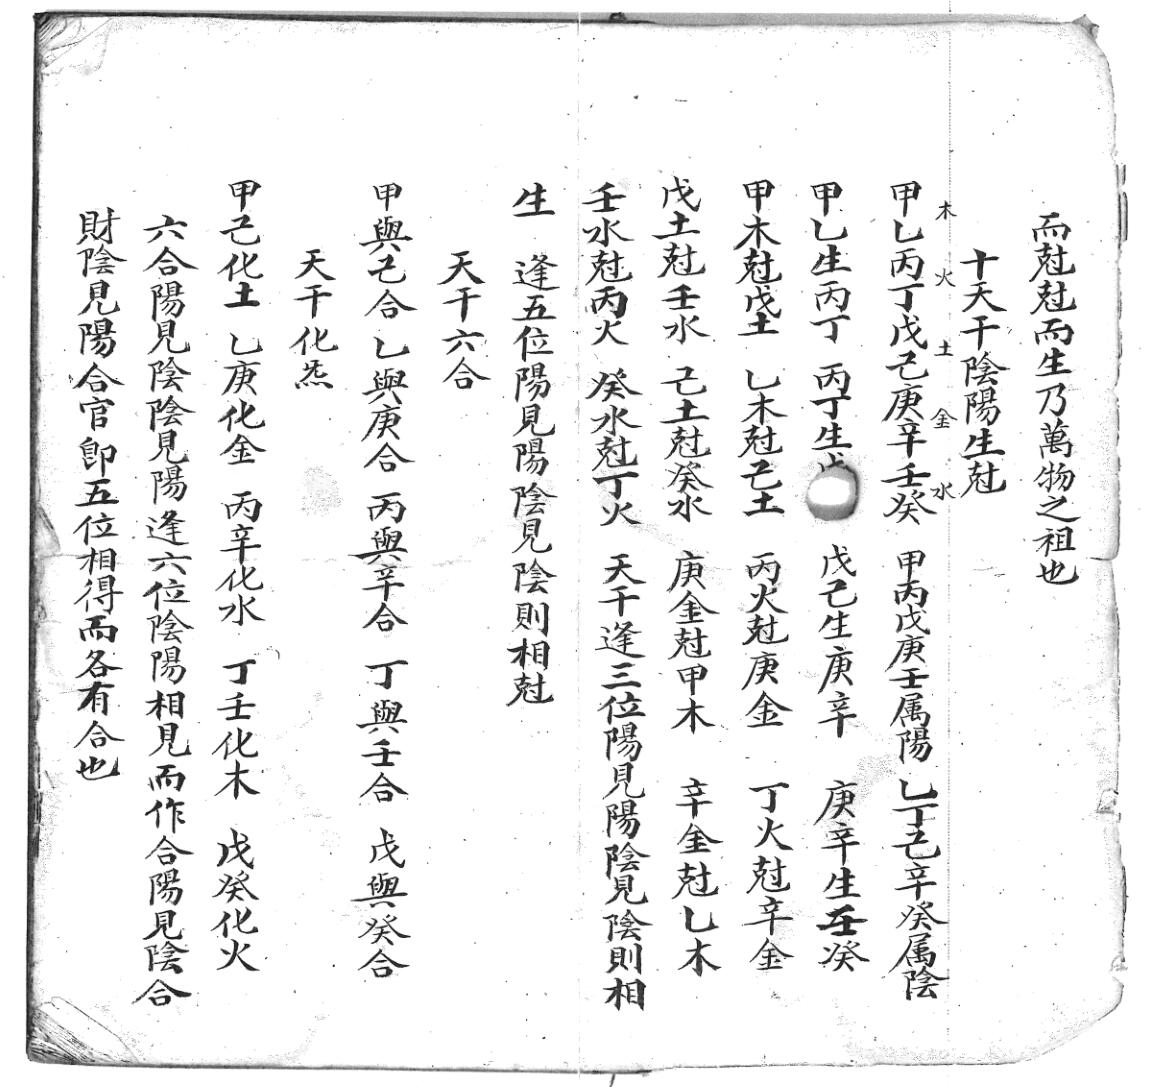 而尅尅而生乃萬物之祖也
十天干陰陽生尅
木 火 土 金 水
甲乙丙丁戊己庚辛壬癸 甲丙戊庚壬属陽 乙丁己辛癸属陰
甲乙生丙丁 丙丁生戊 戊己生庚辛 庚辛生壬癸
甲木尅戊土 乙木尅己土 丙火尅庚金 丁火尅辛金
戊土尅壬水 己土尅癸水 庚金尅甲木 辛金尅乙木
壬水尅丙火 癸水尅丁火 天干逢三位陽見陽陰見陰則相
生 逢五位陽見陽陰見陰則相尅
天干六合
甲與己合 乙與庚合 丙與辛合 丁與壬合 戊與癸合
天干化炁
甲己化土 乙庚化金 丙辛化水 丁壬化木 戊癸化火
六合陽見陰陰見陽逢六位陰陽相見而作合陽見陰合
財陰見陽合官卽五位相得而各有合也